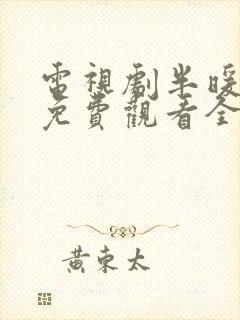 電視劇半暖
免費觀看全
黃東太